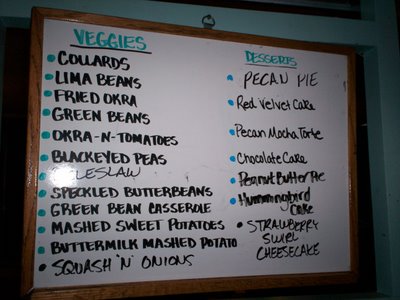 VEGGIES
COLLARDS
LIMA BEANS
FRIED OKRA
GREEN BEANS
OKRA-N-TOMATOES
BLACKEYED PEAS
SPECKLED BUTTERBEANS
GREEN BEAN CASSEROLE
MASHED SWEET POTATOES
BUTTERMILK MASHED POTATO
SQUASH 'N' ONIONS
DESSERTS
PECAN PIE
Red Velvet Cake
Pecan Mocha Torte
Chocolate Cake
Peanut Butter Pie
Hummingbird
Cake
STRAWBERRY
SWIRL
CHEESECAKE